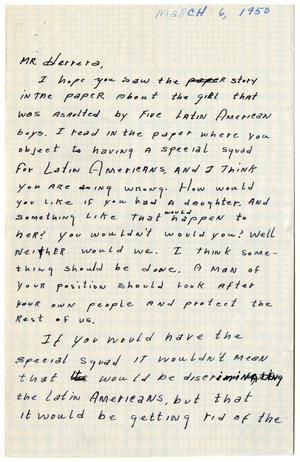 MARCH 6, 1950
MR. Herrera,
I hope you saw the paper story
in the paper about the girl that
was asaulted by five Latin American
boys. I read in the paper where you
object to having a special squad
for Latin Americans, and I think
you are doing wrong. How would
you like if you had a daughter. And
something like that would happen to
her? you wouldn't would you? Well
neither would we. I think some-
thing should be done. A man of
your position should look after
your own people and protect the
rest of us.
If you would have the
special squad it wouldn't mean
that would be discriminating
the Latin Americans, but that
it would be getting rid of the